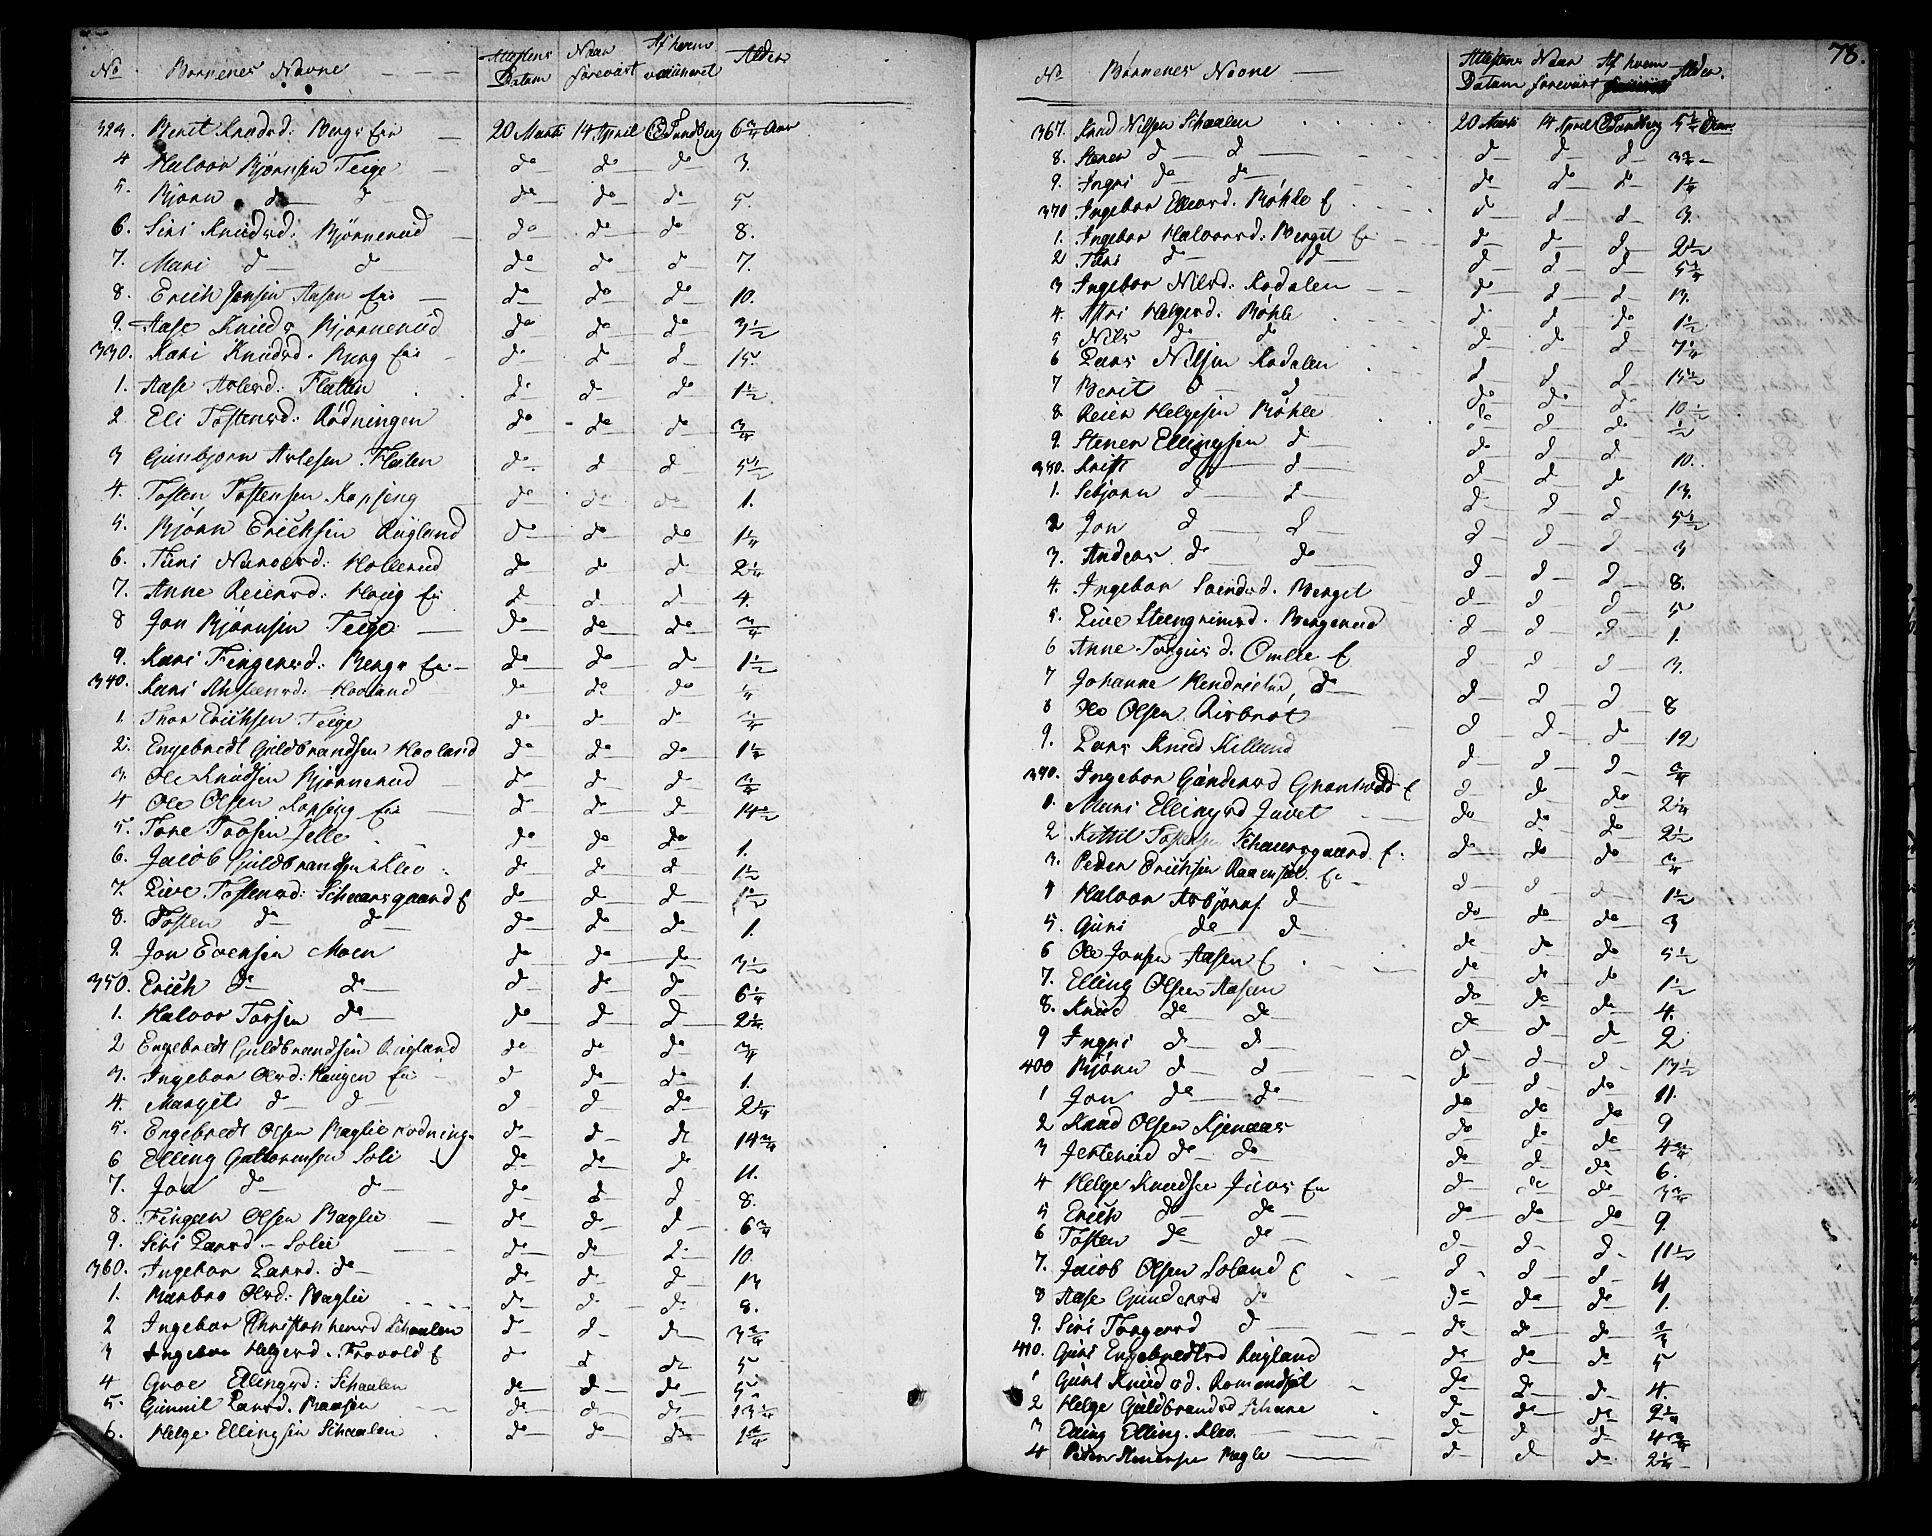 No Børnenes Navne Attestens Datum Naar forevist Af hvem vaccineret Alder
323. Berit Knudsd: Bergs Eie 20 Marts 14 April Tandberg 6 3/4 Aar
4 Halvor Bjørnsen Teige do do do 3.
5. Bjørn do d do do do 5.
6. Siri Knudsd: Bjørnerud do do do 8.
7. Mari d d do do do 7.
8. Erich Jonsen Aasen Eie do do do 10.
9. Aase Knudsd Bjørnerud do do do 3 1/2
330. Kari Knudsd. Berg Eie do do d 15.
1. Aase Atlesd: Flatten do do do 1 1/2
2 Eli Tostensd: Rødningen do do do 3/4
3 Gunbjørn Atlesen Flaten do d d 5 1/2
4. Tosten Tostensen Kopseng do do do 1.
5. Bjørn Erichsen Rugland do do do 1 1/4
6. Turi Narvesd: Hollerud do do do 2 1/4
7. Anne Reiersd: Houg Eie d d d 4.
8 Jon Bjørnsen Teige do do do 3/4
9. Kari Fingersd: Bergs Eie do do do 1 1/2
340. Kari Hovland do do do 1/4
1. Thor Erichsen Teige do do do
2. Engebredt Guldbrandsen Hovland do do do 1 1/2
3. Ole Knudsen Bjørnerud do do do 3/4
4 Ole Olsen Kopseng Eie d d d 14 1/2
5. Tore Toosen do do do 1.
6. Jacob Guldbrandsen Kleo do do do 1 1/2
7. Live Tostensd: Schaarsgaard E do do do 1 1/2
8. Tosten do do do do do 1.
9. Jon Evensen Moen do do do 3 1/2
350. Erich do do do do do 6 1/4
1. Halvor Torsen do do d d 2 1/4
2 Engebredt Guldbrandsen Rugland do do do 3/4
3. Ingebor Olsd: Haugen Eie d do do 1.
4. Margit d d d d do 2 1/4
5. Engebredt Olsen Baglie do do d 14 3/4
6 Elling Guttormsen Solie do do do 11.
7. Jon do d do d d 8.
8. Fingen Olsen Baglie do do d 6 3/4
9. Siri Larsd. Solie do do d 10.
360. Ingebor Larsd. do do do d 13
1. Barbro Olsd: Baglie do d do 8.
2 Ingebor Christophersd Schaalen do d do 3 3/4
3 Ingebor Helgesd. Frovold E do d do 5
4 Groe Ellingsd: Schaalen do d do 5
5. Gunnil Larsd. do do do
6. Helge Ellingsen Schaalen do do do 1 3/4
78.
No Børnenes Navne Attestens Datum Naar forevist Af hvem Alder.
367. Knud Nilsen Schaalen 20 Marts 14 April Tandberg 5 1/2 Aar
8. Stener d d do do d 3 3/4
9. Ingri do do d d do 1 1/4
370 Ingebor Ellevsd. Bøhle E d d d 3.
1. Ingebor Halvorsd: Berget Eie d d do 2 1/2
2 Turi do do d d d 5 1/4
3 Ingebor Nilsd: Rodalen d d d 13.
4. Astri Helgesd. Bøhle d d do 1 1/2
5 Nils do do d d d 7 1/4
6 Lars Nilsen Rodalen d d d 15 1/2
7 Berit d d do do do 10 1/2
8 Reier Helgesen Bøhle do d do 1/2
9. Stener Ellingsen d do d d 10.
380. Kristi d d d d do 13.
1. Sebjørn d d d d d 5 1/2
2 Jon d d d d d 3
3. Andreas do do d d d 8.
4. Ingebor Svendsd. Berget d d d 5
5. Live Steengrimsd. Bergerud d d d 1.
6 Anne Torgusd. Omlie E d d d 3.
7 Johanne Hendricksd, do d d d 8
8 Ole Olsen Risbrot d d do 12
9. Lars Knud Killand d d d 3/4
390. Ingebor Gundersd Grantvold E d d do 2 1/4
1. Mari Ellingsd Juvet do do do 2 1/2
2 Kittil Tostensen Schaarsgaard E. do do do 3/4
3. Peder Erichsen Eie d d d 1 1/2
4 Halvor Asbjørns. d do do do 3
5. Guri do d do do do 5 1/2
6 Ole Jonsen Aasen E do d do 1 1/2
7. Elling Olsen Aasen do do do 4.
8. Knud do do do do do 2
9 Ingri d d d d d 13 1/2
400 Bjørn d d do d do 11.
1 Jon do do do do do 9
2 Knud Olsen Kjenaas do do do 4 3/4
3 Jerterud do do do do do 6.
4 Helge Knudsen Juvs Eie d do do 3 3/4
5 Erich do do do do do 9.
6 Tosten do do d d d 11 1/2
7. Jacob Olsen Soland E d d d 4
8 Aase Gundersd do do do do 1.
9. Siri Torgersd d do do do
410. Guri Engebredtsd Rugland do do do 5
1 Guri Knudsd. Romandsøt do do do 4.
2 Helge Guldbrandsd Schare d do do 2 1/4
3 Elling Elling. Kleo d d d 4 3/4
4 Peder Stenersen Bagle d d do 2 1/4